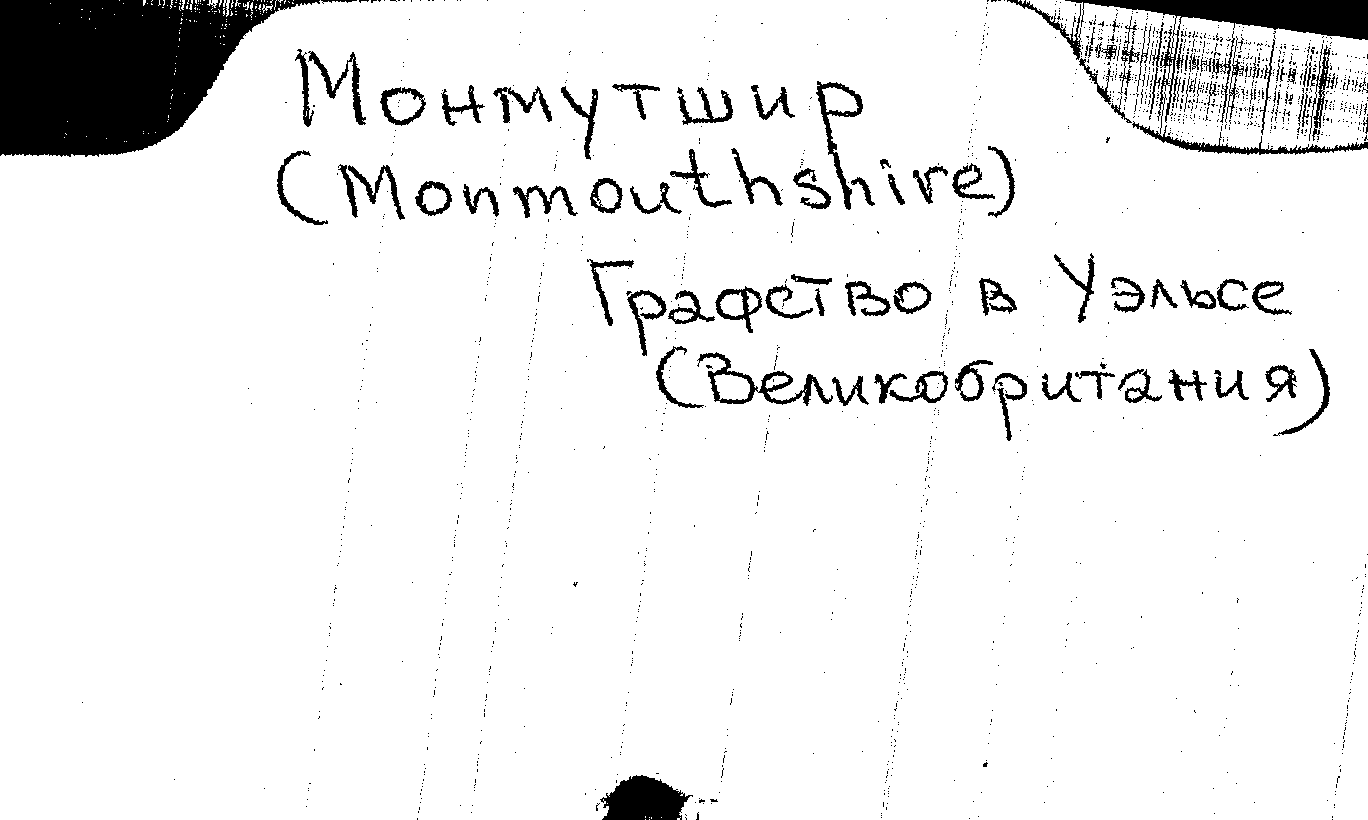 Монмутшир
(Monmouthshire)
Графство в Уэльсе
(Великобритания)